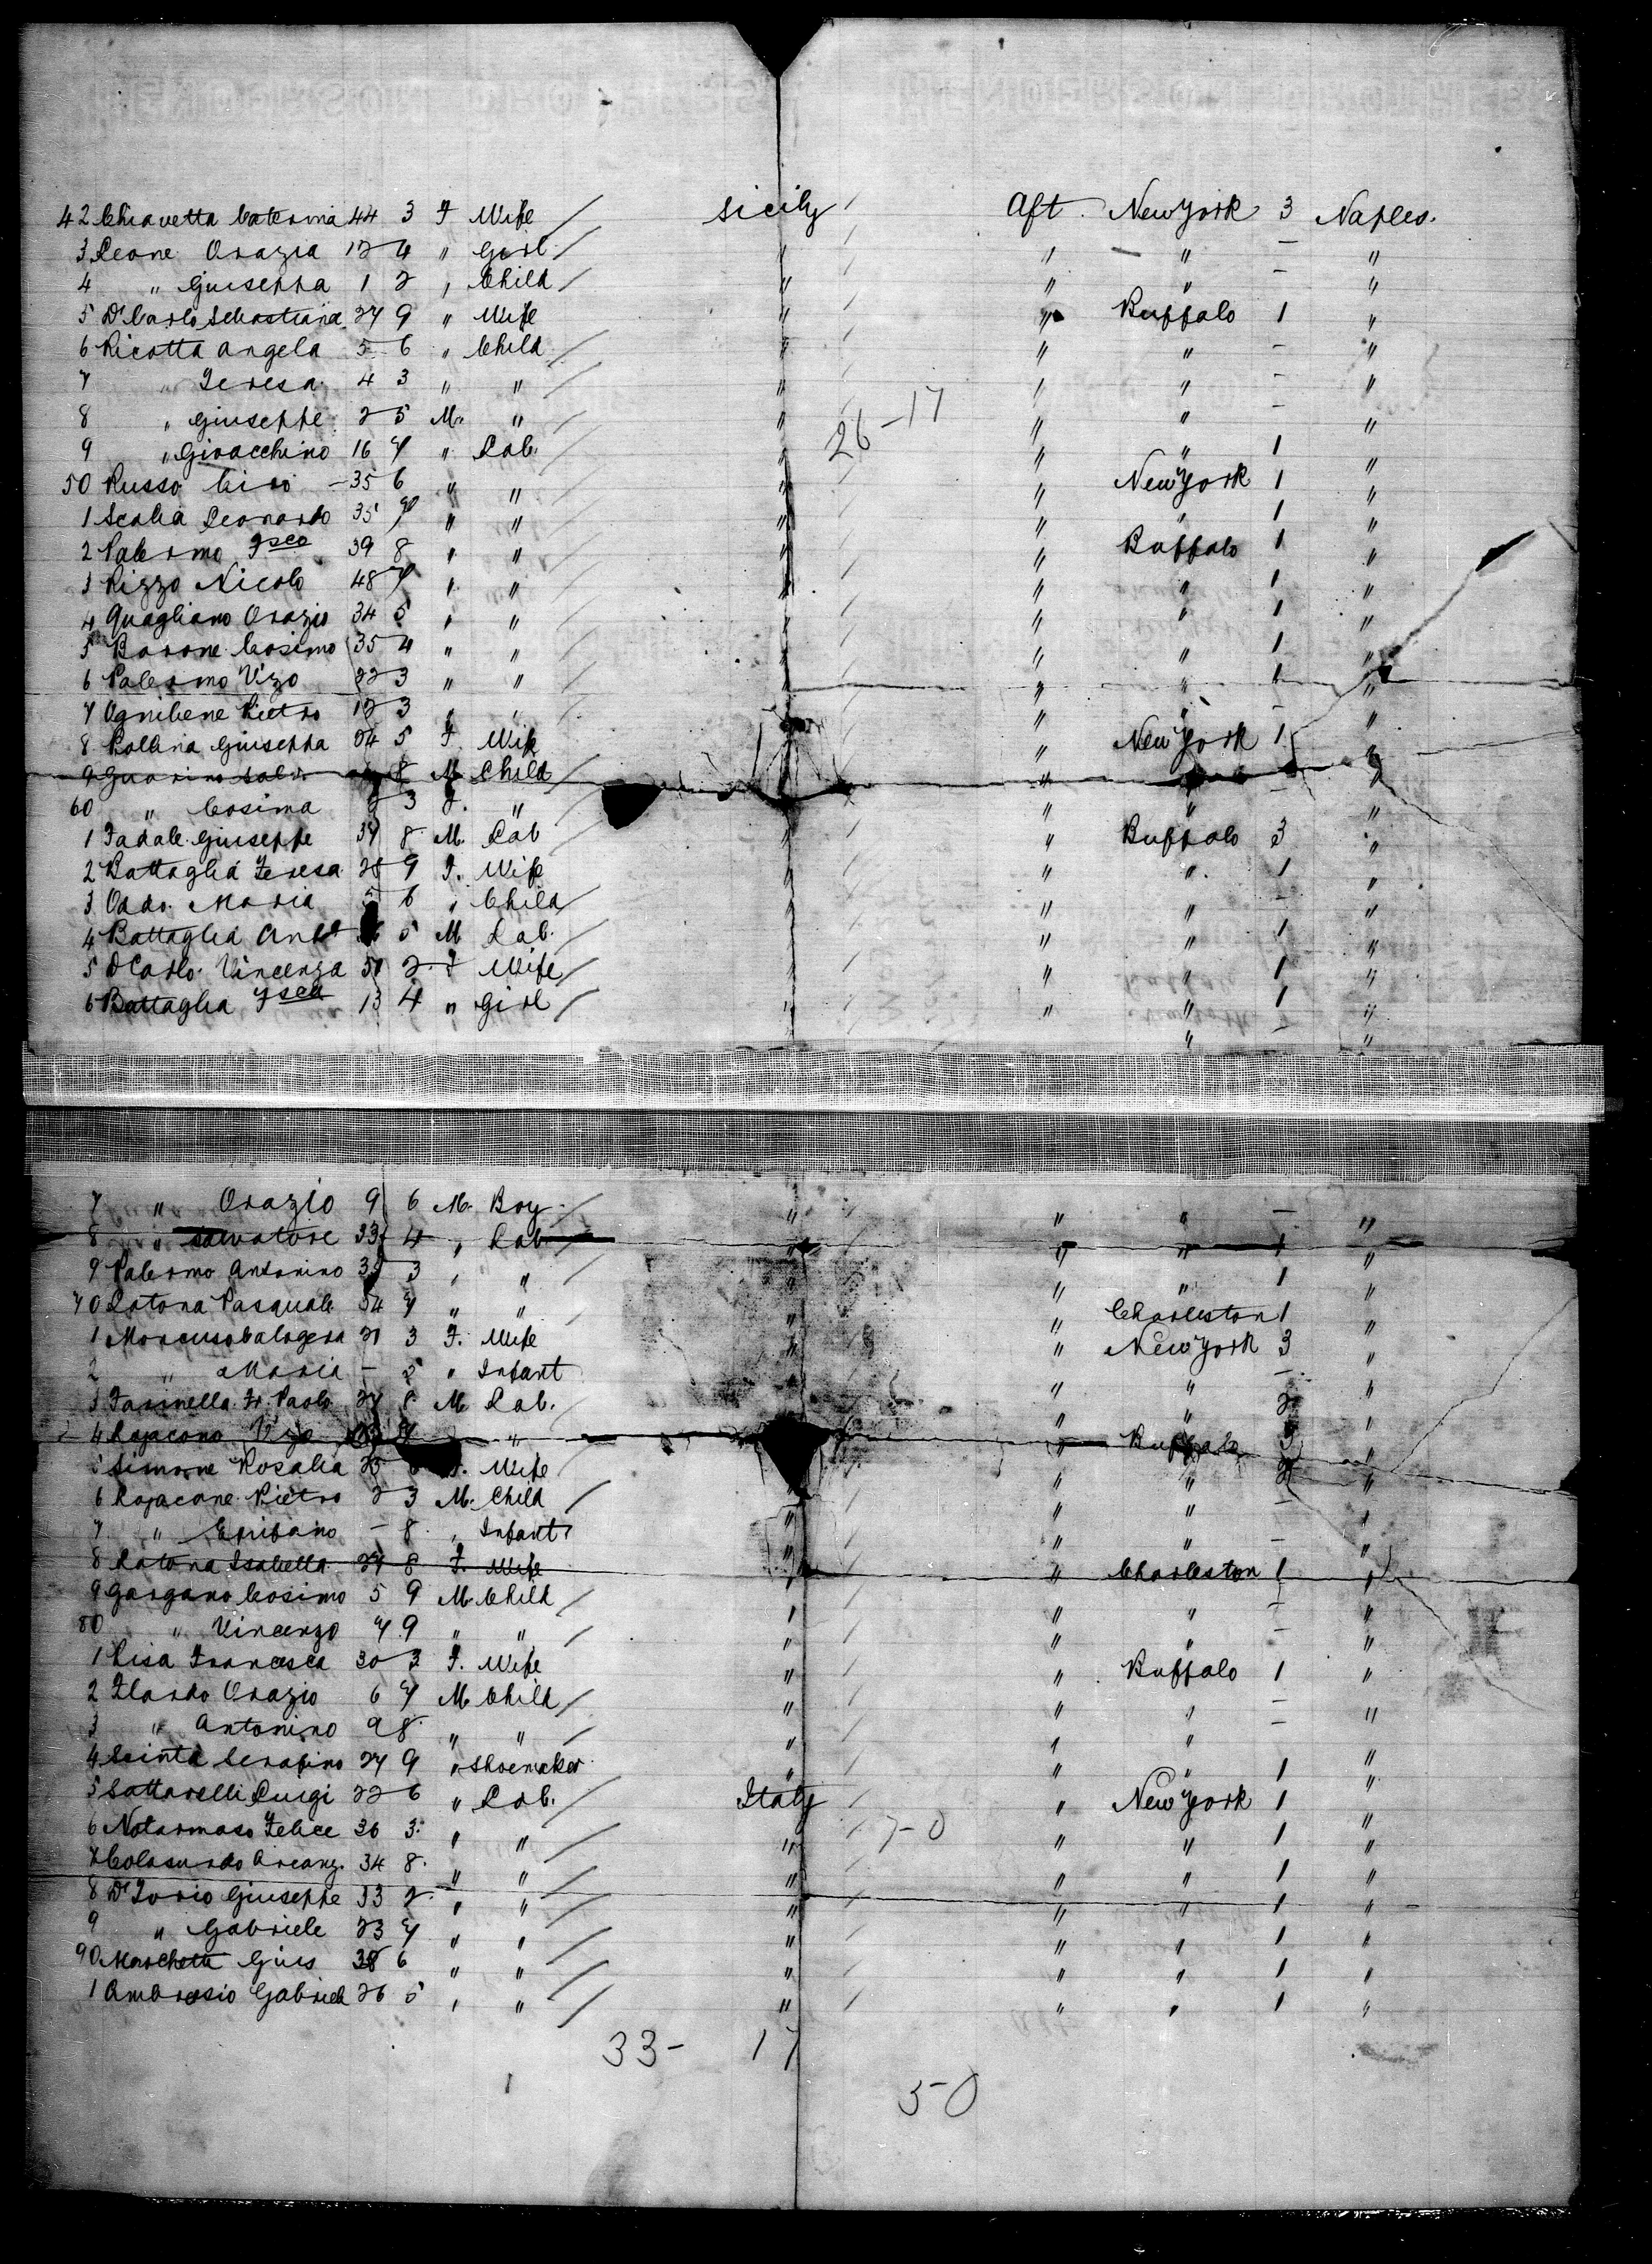 42 Chiavetta Caterina 44 3 F Wife / Sicily / Aft. New York 3 Naples.
3 Leone Orazia 12 4 " Girl / " / " " – "
4 " Giuseppa 1 2 " Child / " / " " – "
5 Di Carlo Sebastiana 27 9 " Wife " / " Buffalo 1 "
6 Ricotta Angela 5 6 " Child / " / " " – "
7 " Teresa 4 3 " " / " / " " – "
8 " Giuseppe 2 5 M. " / " / " " – "
26–17
9 " Gioacchino 16 7 " Lab. / " / " " 1 "
50 Russo Ciro – 35 6 " " / " / " New York 1 "
1 Scalia Leonardo 35 7 " " / " / " " 1 "
2 Palermo Fsco 39 8 " " / " / " Buffalo 1 "
3 Rizzo Nicolo 48 7 " " / " / " " 1 "
4 Quagliano Orazio 34 5 " " / " / " " 1 "
5 Barone Cosimo 35 4 " " / " / " " 1 "
6 Palermo Vizo 22 3 " " / " / " " 1 "
7 Ognibene Pietro 12 3 " " / " / " " – "
8 Pollina Giuseppa 24 5 F. Wife " / " New York 1 "
9 Guarino Salv. 8 M. Child / " " "
60 " Cosima 2 3 F. " / " " – "
1 Fadale Giuseppe 37 8 M. Lab " / " Buffalo 3 "
2 Battaglia Teresa 28 9 F. Wife " / " " 1 "
3 Oddo Maria 5 6 " Child / " / " " – "
4 Battaglia Anto 5 M Lab. " / " " 1 "
5 D Carlo Vincenza 51 2 F Wife / " / " " 1 "
6 Battaglia Fsca 13 4 " Girl / " / " " 1 "
" – "
7 " Orazio 9 6 M. Boy / " / " " – "
8 " Salvatore 33 4 " Lab / " / " " 1 "
9 Palermo Antonino 35 3 " " / " / " " 1 "
70 Latona Pasquale 54 7 " " " / " Charleston 1 "
1 Mancuso Calogera 21 3 F. Wife " / " New York 3 "
2 " Maria – 2 " Infant " " – "
3 Farinella Fr. Paolo 27 8 M Lab. " " 2 "
4 Lojacono Vizo 7 " " Buffalo 3 "
5 Simone Rosalia 25 F. Wife " " 2 "
6 Lojacono Pietro 2 3 M. Child / " / " " – "
7 " Epifano – 8 " Infant " / " " – "
8 Latona Isabella 27 8 F. Wife " " Charleston 1 "
9 Gargano Cosimo 5 9 M. Child / " / " " – "
80 " Vincenzo 7 9 " " / " / " " – "
1 Pisa Francesca 30 3 F. Wife " / " Buffalo 1 "
2 Ilardo Orazio 6 7 M Child / " / " " – "
3 " Antonino 9 8 " " / " / " " – "
4 Scinta Serafino 27 9 " Shoemaker " / " " 1 "
5 Sattarelli Luigi 22 6 " Lab. / Italy / " New York 1 "
6 Notarmaso Felice 36 3 " " / " / 7–0 " " 1 "
7 Colasurdo Arcang. 34 8 " " / " / " " 1 "
8 Di Iorio Giuseppe 33 2 " " / " / " " 1 "
9 " Gabriele 23 7 " " / " / " " 1 "
90 Marchetti Gius 38 6 " " / " / " " 1 "
1 Ambrosio Gabriele 26 5 " " / " / " " 1 "
33– 17
50